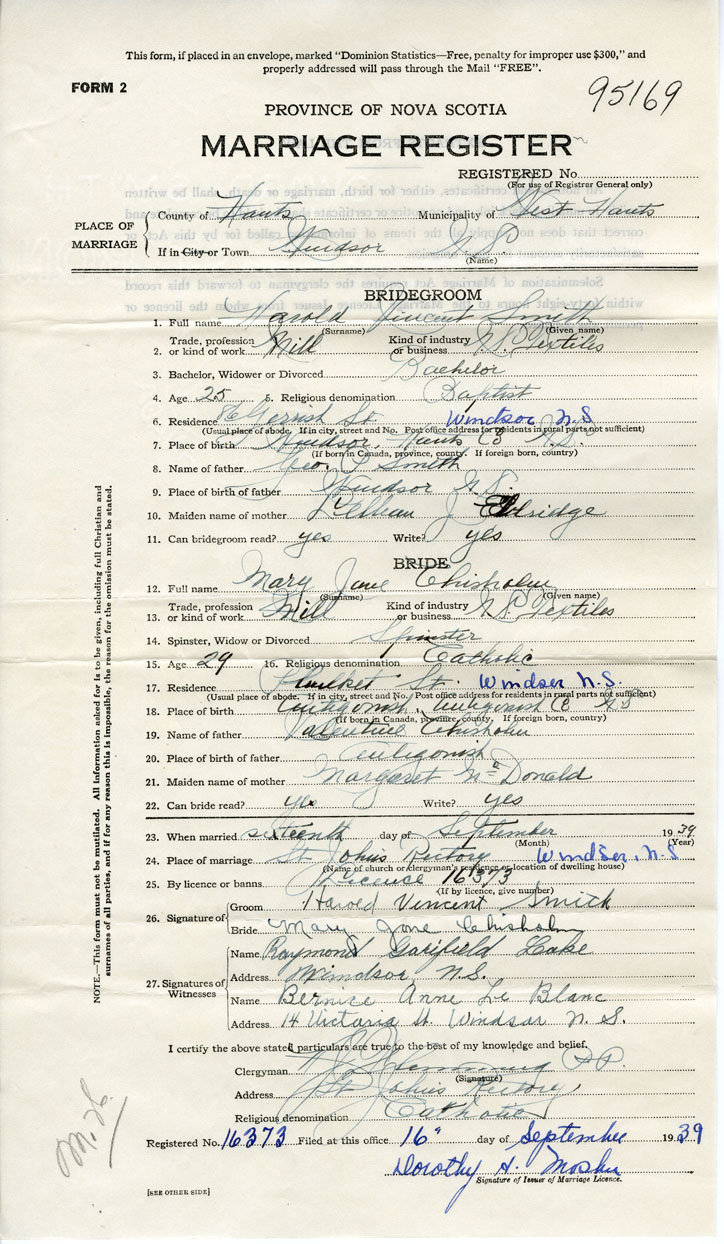 This form, if placed in an envelope, marked "Dominion Statistics—Free, penalty for improper use $300," and
properly addressed will pass through the Mail "FREE".
FORM 2
95169
PROVINCE OF NOVA SCOTIA
MARRIAGE REGISTER
REGISTERED No.
(For use of Registrar General only)
PLACE OF MARRIAGE
County of Hants Municipality of West Hants
If in City or Town Windsor N.S.
(Name)
BRIDEGROOM
1. Full name Harold Vincent Smith
(Surname) (Given name)
2. Trade, profession or kind of work Mill Kind of industry or business N.S. Textiles
3. Bachelor, Widower or Divorced Bachelor
4. Age 25 5. Religious denomination Baptist
6. Residence Gerrish St. Windsor N.S
(Usual place of abode. If in city, street and No. Post office address for residents in rural parts not sufficient)
7. Place of birth Windsor, Hants Co N.S.
(If born in Canada, province, county. If foreign born, country)
8. Name of father Geo. Smith
9. Place of birth of father Windsor N.S.
10. Maiden name of mother J Eldridge
11. Can bridegroom read? yes Write? yes
BRIDE
12. Full name Mary Jane Chisholm
(Surname) (Given name)
13. Trade, profession or kind of work Mill Kind of industry or business N.S. Textiles
14. Spinster, Widow or Divorced Spinster
15. Age 29 16. Religious denomination Catholic
17. Residence St. Windsor N.S.
(Usual place of abode. If in city, street and No. Post office address for residents in rural parts not sufficient)
18. Place of birth Antigonish, Antigonish Co N.S
(If born in Canada, province, county. If foreign born, country)
19. Name of father Valentine Chisholm
20. Place of birth of father Antigonish
21. Maiden name of mother Margaret McDonald
22. Can bride read? yes Write? yes
23. When married sixteenth day of September 1939
(Month) (Year)
24. Place of marriage St Johns Rectory Windsor, N.S
(Name of church or clergyman's residence or location of dwelling house)
25. By licence or banns License 16373
(If by licence, give number)
26. Signature of
Groom Harold Vincent Smith
Bride Mary Jane Chisholm
27. Signatures of Witnesses
Name Raymond Garifield Lake
Address Windsor N.S.
Name Bernice Anne Le Blanc
Address 14 Victoria St. Windsor N. S.
I certify the above stated particulars are true to the best of my knowledge and belief.
Clergyman P.P.
(Signature)
Address St Johns Rectory
Religious denomination Catholic
Registered No. 16373 Filed at this office 16" day of September 1939
Dorothy H. Mosher
Signature of Issuer of Marriage Licence.
[SEE OTHER SIDE]
NOTE.—This form must not be mutilated. All information asked for is to be given, including full Christian and
surnames of all parties, and if for any reason this is impossible, the reason for the omission must be stated.